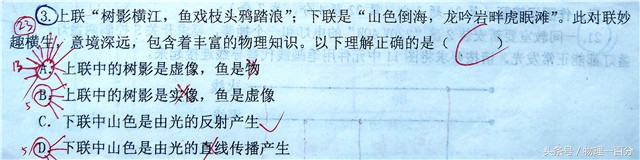 23 3.上联“树影横江，鱼戏枝头鸦踏浪”；下联是“山色倒海，龙吟岩畔虎眠滩”。此对联妙
趣横生，意境深远，包含着丰富的物理知识。以下理解正确的是（ ）
13 A. 上联中的树影是虚像，鱼是物
5 B. 上联中的树影是实像，鱼是虚像
C. 下联中山色是由光的反射产生
5 D. 下联中山色是由光的直线传播产生
头条号／物理一百分